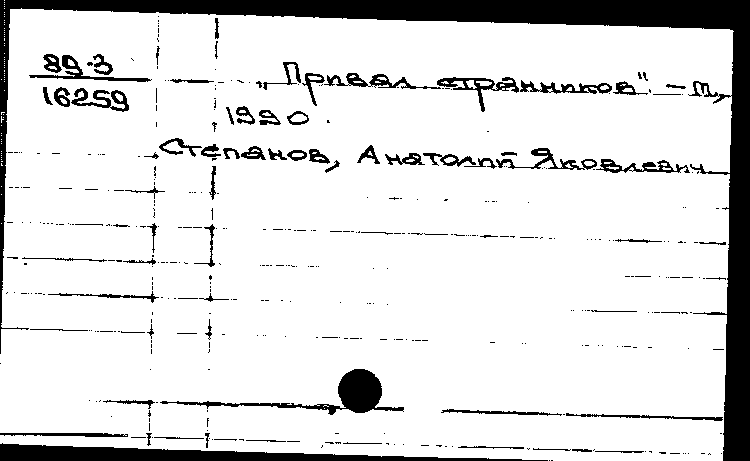 89-3
16259
„Привал странников". – М.,
1990.
Степанов, Анатолий Яковлевич